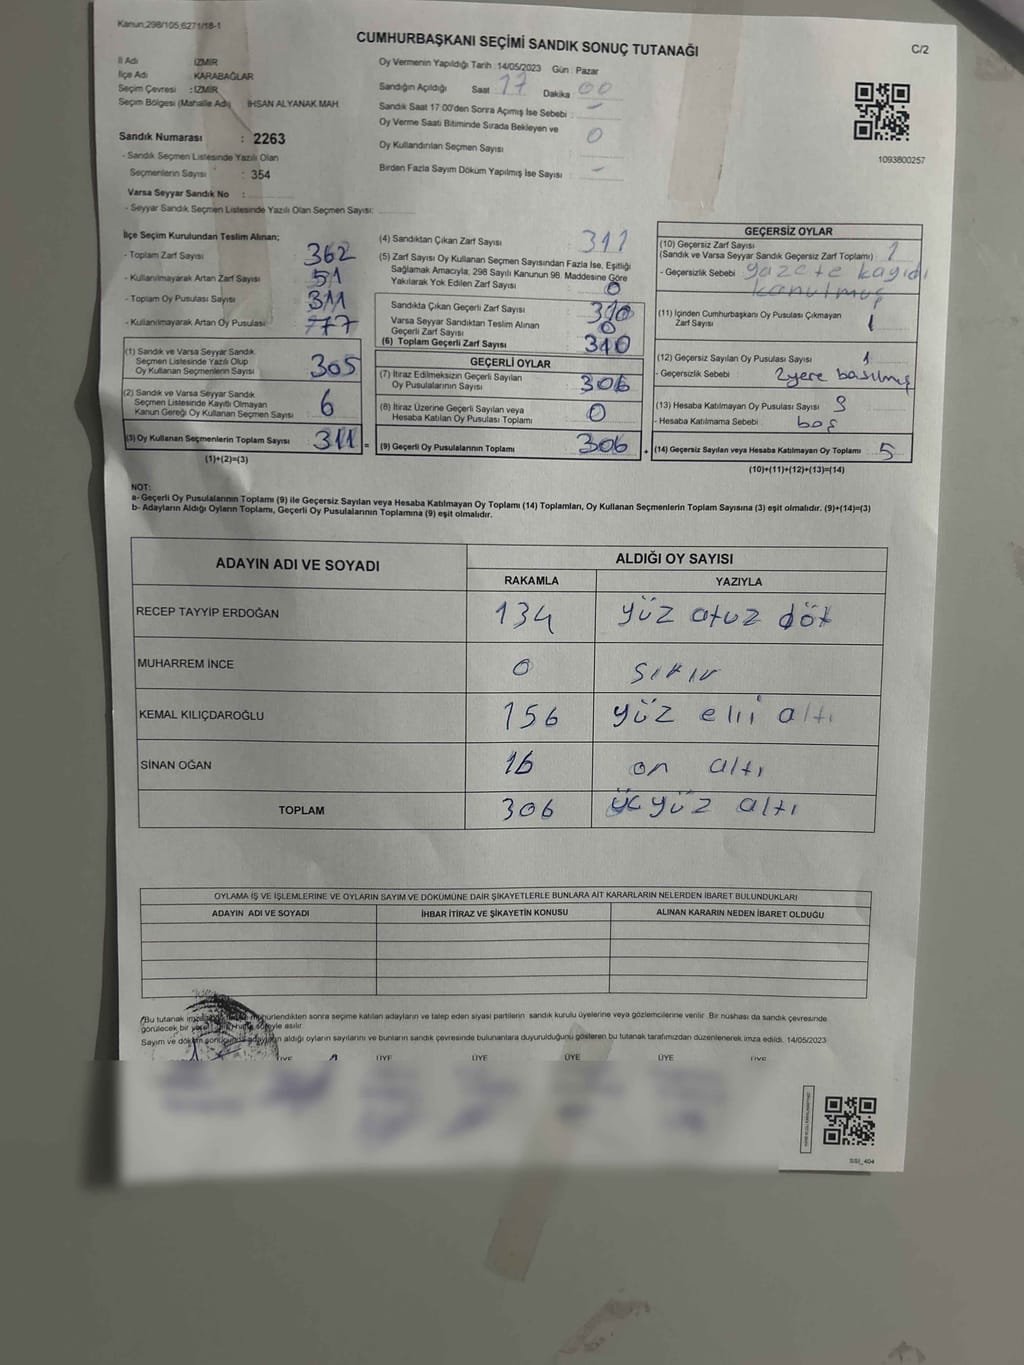 Kanun;298/105;6271/18-1
CUMHURBAŞKANI SEÇİMİ SANDIK SONUÇ TUTANAĞI
C/2
İl Adı İZMİR
İlçe Adı KARABAĞLAR
Seçim Çevresi : İZMİR
Seçim Bölgesi (Mahalle Adı) İHSAN ALYANAK MAH
Sandık Numarası : 2263
- Sandık Seçmen Listesinde Yazılı Olan
Seçmenlerin Sayısı : 354
Varsa Seyyar Sandık No :
- Seyyar Sandık Seçmen Listesinde Yazılı Olan Seçmen Sayısı:
Oy Vermenin Yapıldığı Tarih : 14/05/2023 Gün : Pazar
Sandığın Açıldığı Saat 17 Dakika 00
Sandık Saat 17:00'den Sonra Açımış İse Sebebi : -
Oy Verme Saati Bitiminde Sırada Bekleyen ve
Oy Kullandırılan Seçmen Sayısı 0
Birden Fazla Sayım Döküm Yapılmış İse Sayısı -
1093800257
İlçe Seçim Kurulundan Teslim Alınan;
- Toplam Zarf Sayısı 362
- Kullanılmayarak Artan Zarf Sayısı 51
- Toplam Oy Pusulası Sayısı 311
- Kullanılmayarak Artan Oy Pusulası 77
(1) Sandık ve Varsa Seyyar Sandık
Seçmen Listesinde Yazılı Olup
Oy Kullanan Seçmenlerin Sayısı 305
(2) Sandık ve Varsa Seyyar Sandık
Seçmen Listesinde Kayıtlı Olmayan
Kanun Gereği Oy Kullanan Seçmen Sayısı 6
(3) Oy Kullanan Seçmenlerin Toplam Sayısı 311 =
(1)+(2)=(3)
(4) Sandıktan Çıkan Zarf Sayısı 311
(5) Zarf Sayısı Oy Kullanan Seçmen Sayısından Fazla İse, Eşitliği
Sağlamak Amacıyla, 298 Sayılı Kanunun 98. Maddesine Göre
Yakılarak Yok Edilen Zarf Sayısı 0
Sandıkta Çıkan Geçerli Zarf Sayısı 310
Varsa Seyyar Sandıktan Teslim Alınan
Geçerli Zarf Sayısı 0
(6) Toplam Geçerli Zarf Sayısı 310
GEÇERLİ OYLAR
(7) İtiraz Edilmeksizin Geçerli Sayılan
Oy Pusulalarının Sayısı 306
(8) İtiraz Üzerine Geçerli Sayılan veya
Hesaba Katılan Oy Pusulası Toplamı 0
(9) Geçerli Oy Pusulalarının Toplamı 306 +
GEÇERSİZ OYLAR
(10) Geçersiz Zarf Sayısı
(Sandık ve Varsa Seyyar Sandık Geçersiz Zarf Toplamı) 1
- Geçersizlik Sebebi gazete kayıdı
kanulmuş
(11) İçinden Cumhurbaşkanı Oy Pusulası Çıkmayan
Zarf Sayısı 1
(12) Geçersiz Sayılan Oy Pusulası Sayısı 1
- Geçersizlik Sebebi : 2yere basılmış
(13) Hesaba Katılmayan Oy Pusulası Sayısı
- Hesaba Katılmama Sebebi : boş
(14) Geçersiz Sayılan veya Hesaba Katılmayan Oy Toplamı 5
(10)+(11)+(12)+(13)=(14)
NOT:
a- Geçerli Oy Pusulalarının Toplamı (9) ile Geçersiz Sayılan veya Hesaba Katılmayan Oy Toplamı (14) Toplamları, Oy Kullanan Seçmenlerin Toplam Sayısına (3) eşit olmalıdır. (9)+(14)=(3)
b- Adayların Aldığı Oyların Toplamı, Geçerli Oy Pusulalarının Toplamına (9) eşit olmalıdır.
ADAYIN ADI VE SOYADI ALDIĞI OY SAYISI
RAKAMLA YAZIYLA
RECEP TAYYİP ERDOĞAN 134 yüz otuz döt
MUHARREM İNCE 0 sıfır
KEMAL KILIÇDAROĞLU 156 yüz elli altı
SİNAN OĞAN 16 on altı
TOPLAM 306 üçyüz altı
OYLAMA İŞ VE İŞLEMLERİNE VE OYLARIN SAYIM VE DÖKÜMÜNE DAİR ŞİKAYETLERLE BUNLARA AİT KARARLARIN NELERDEN İBARET BULUNDUKLARI
ADAYIN ADI VE SOYADI İHBAR İTİRAZ VE ŞİKAYETİN KONUSU ALINAN KARARIN NEDEN İBARET OLDUĞU
Bu tutanak mühürlendikten sonra seçime katılan adayların ve talep eden siyasi partilerin sandık kurulu üyelerine veya gözlemcilerine verilir. Bir nüshası da sandık çevresinde
görülecek bir asılır.
Sayım ve aldığı oyların sayılarını ve bunların sandık çevresinde bulunanlara duyurulduğunu gösteren bu tutanak tarafımızdan düzenlenerek imza edildi. 14/05/2023
ÜYE ÜYE ÜYE ÜYE ÜYE ÜYE
SSI_404